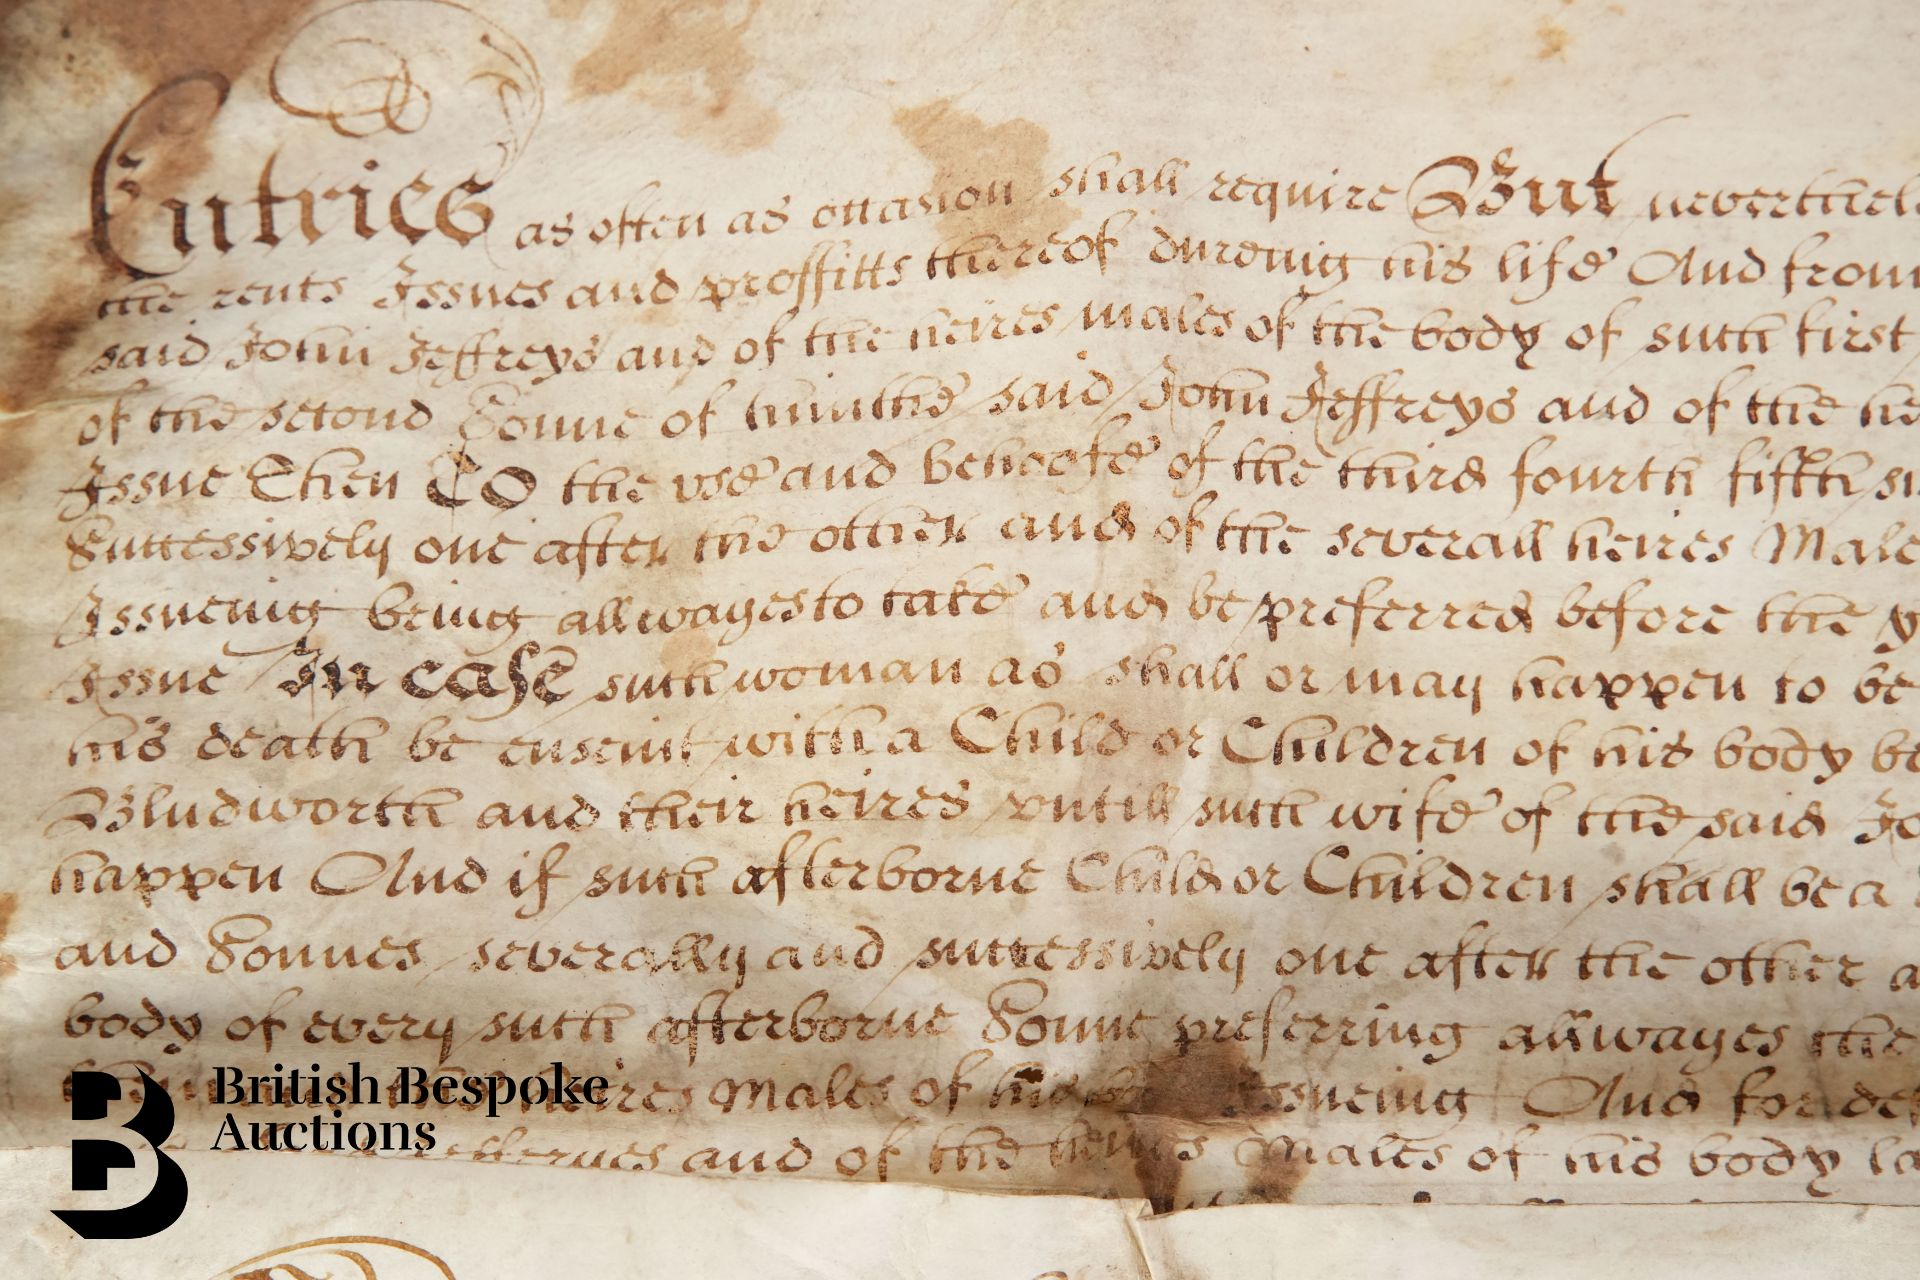 Entries as often as occasion shall require But neverthel
the rents Issues and proffitts thereof dureing his life And from
said John Jeffreys and of the heires males of the body of such first
of the second Sonne of him the said John Jeffreys and of the he
Issue Then TO the vse and behoofe of the third fourth fifth si
Successively one after the other and of the severall heires Male
Issueing being allwayes to take and be preferred before the y
Issue In case such woman as shall or may happen to be
his death be enseint with a Child or Children of his body be
Bludworth and their heires vntill such wife of the said Jo
happen And if such afterborne Child or Children shall be a
and Sonnes severally and successively one after the other a
body of every such afterborne Sonne preferring allwayes the
heires Males of his Issueing And for def
and of the heires Males of his body la
British Bespoke
Auctions